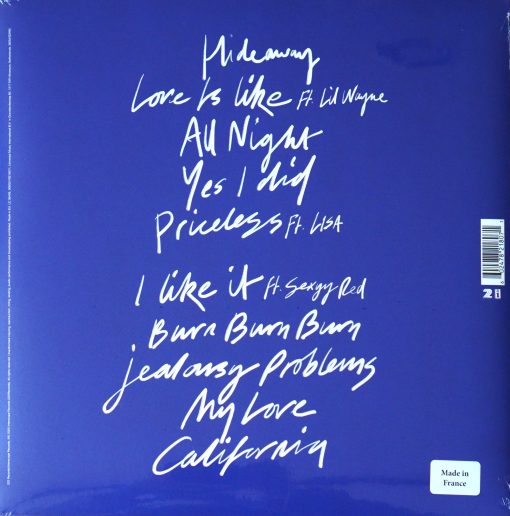 Hideaway
Love Is Like Ft. Lil Wayne
All Night
Yes I did
Priceless Ft. LISA
I like it ft. Sexyy Red
Burn Burn Burn
Jealousy Problems
My Love
California
Made in
France